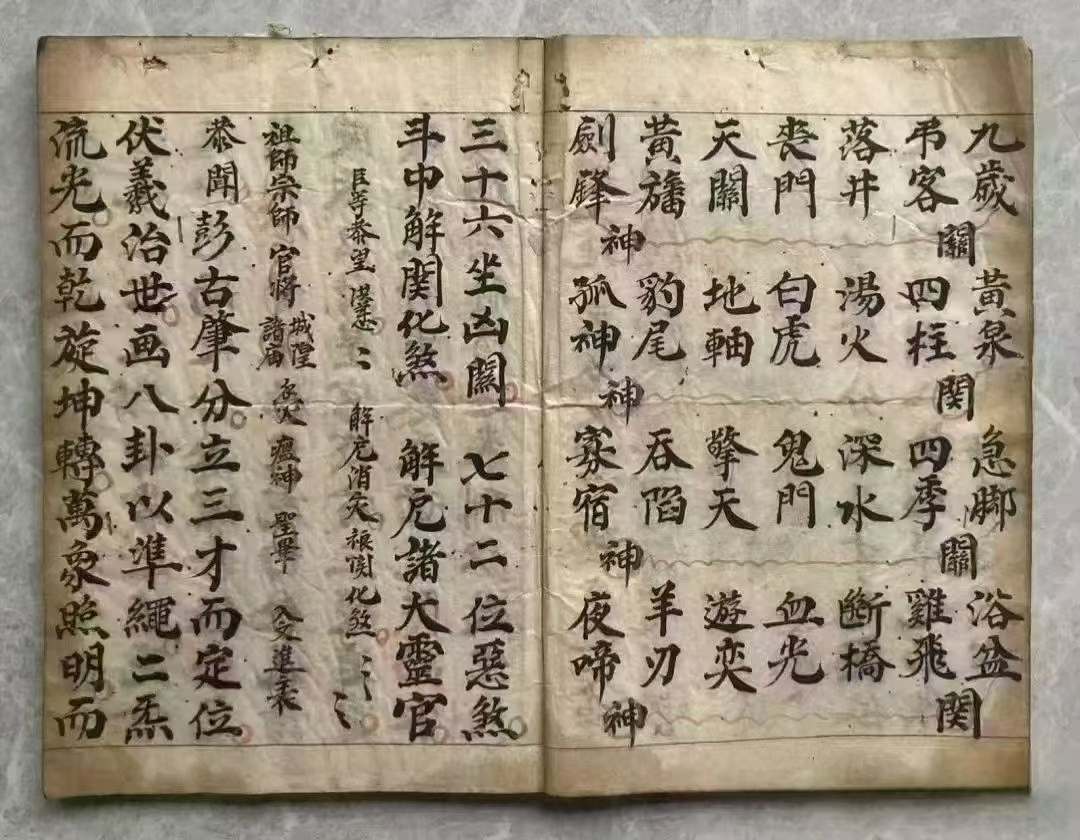 九歲 黃泉 急腳 浴盆
關 関 關 関
弔客 四柱 四季 雞飛
落井 湯火 深水 斷橋
喪門 白虎 鬼門 血光
天關 地軸 擎天 遊奕
黃旛 豹尾 吞啗 羊刃
神 神 神 神
劍鋒 孤神 寡宿 夜啼
三十六坐凶関 七十二位惡煞
斗中解関化煞 解厄諸大靈官
臣等恭望洪慈 解厄消灾禳関化煞
祖師宗師 官將 城隍諸庙 瘟神 聖畢 今進表
恭聞彭古肇分立三才而定位
伏羲治世画八卦以準繩二炁
流光而乾旋坤轉萬象照明而